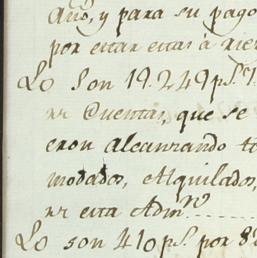 Año, y para su pago
por estar estas à rie
Lo Son 19.249 p.s
nr Cuentas, que se
eron alcanzando t
modados, Alquilados,
nr esta Adm.n
Lo son 410 p.s por 8